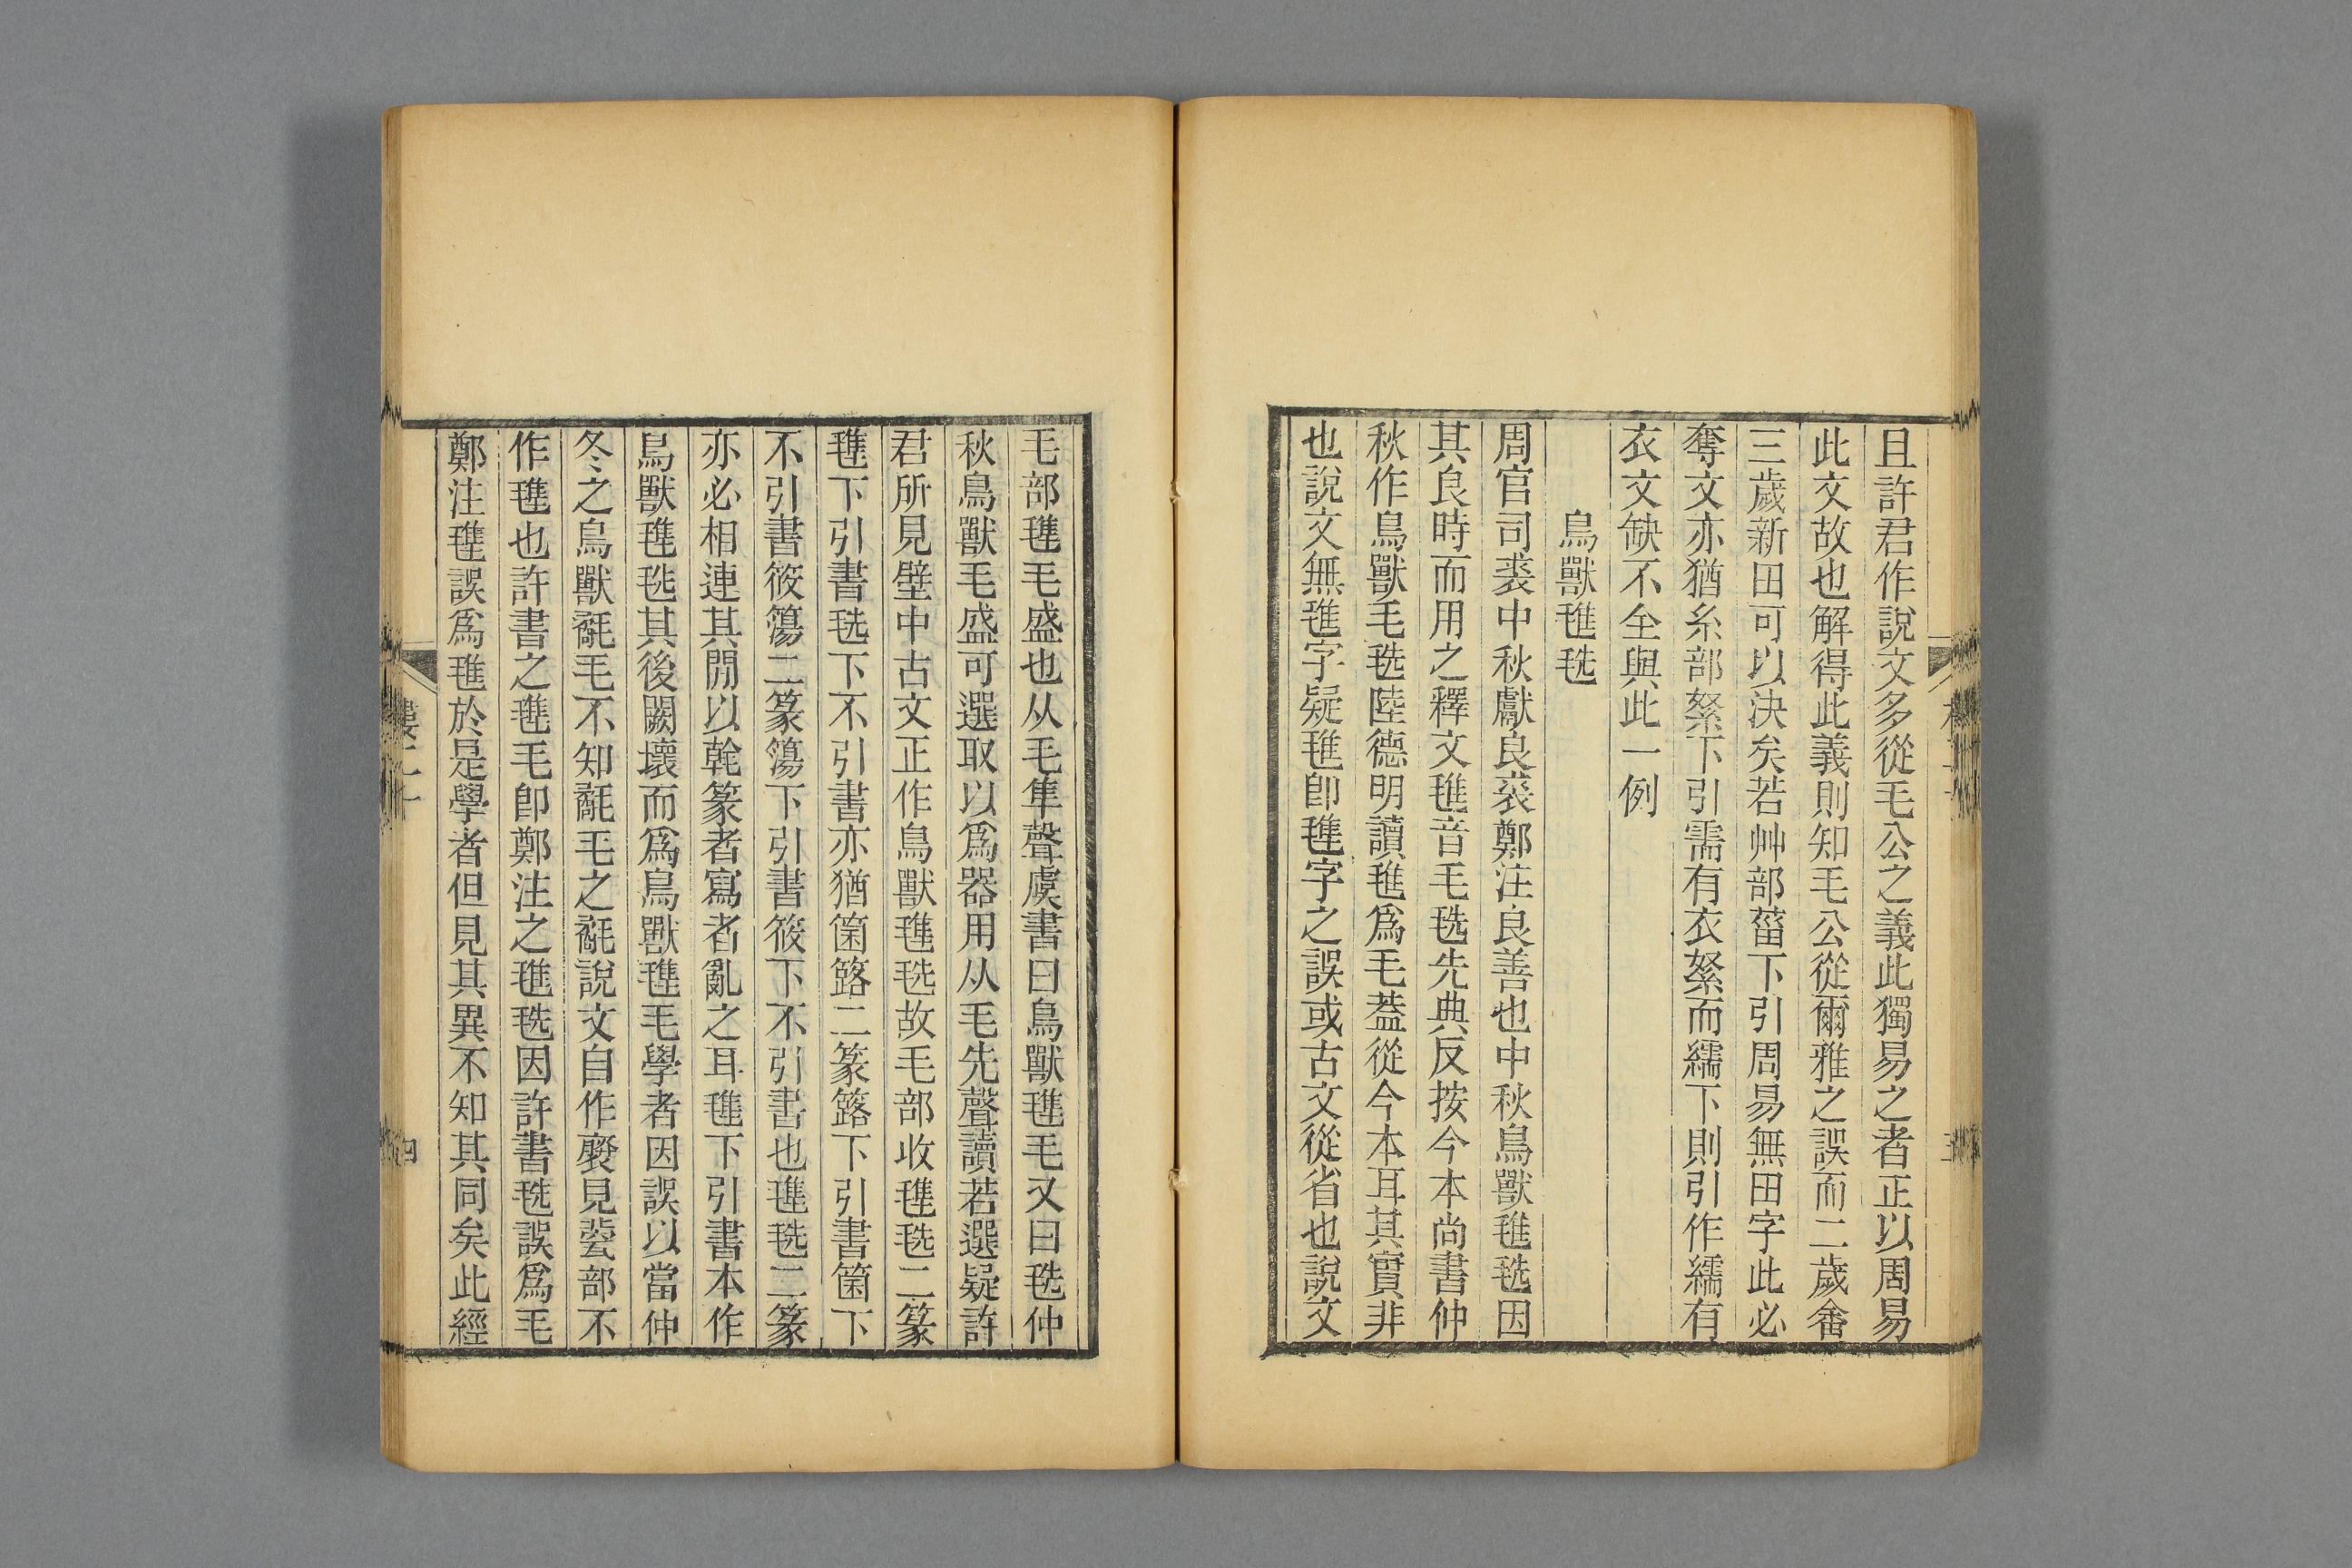 且許君作說文多從毛公之義此獨易之者正以周易
此文故也解得此義則知毛公從爾雅之誤而二歲畬
三歲新田可以決矣若艸部葘下引周易無田字此必
奪文亦猶糸部絮下引需有衣絮而繻下則引作繻有
衣文缺不全與此一例
鳥獸毴毨
周官司裘中秋獻良裘鄭注良善也中秋鳥獸毴毨因
其良時而用之釋文毴音毛毨先典反按今本尚書仲
秋作鳥獸毛毨陸德明讀毴爲毛蓋從今本耳其實非
也說文無毴字疑毴卽𣯍字之誤或古文從省也說文
毛部𣯍毛盛也从毛隼聲虞書曰鳥獸𣯍毛又曰毨仲
秋鳥獸毛盛可選取以爲器用从毛先聲讀若選疑許
君所見壁中古文正作鳥獸𣯍毨故毛部收𣯍毨二篆
𣯍下引書毨下不引書亦猶箘簬二篆簬下引書箘下
不引書筱簜二篆簜下引書筱下不引書也𣯍毨二篆
亦必相連其閒以毤篆者寫者亂之耳𣯍下引書本作
鳥獸𣯍毨其後闕壞而爲鳥獸𣯍毛學者因誤以當仲
冬之鳥獸氄毛不知氄毛之氄說文自作𣮉見㼱部不
作𣯍也許書之𣯍毛卽鄭注之毴毨因許書毨誤爲毛
鄭注𣯍誤爲毴於是學者但見其異不知其同矣此經
四